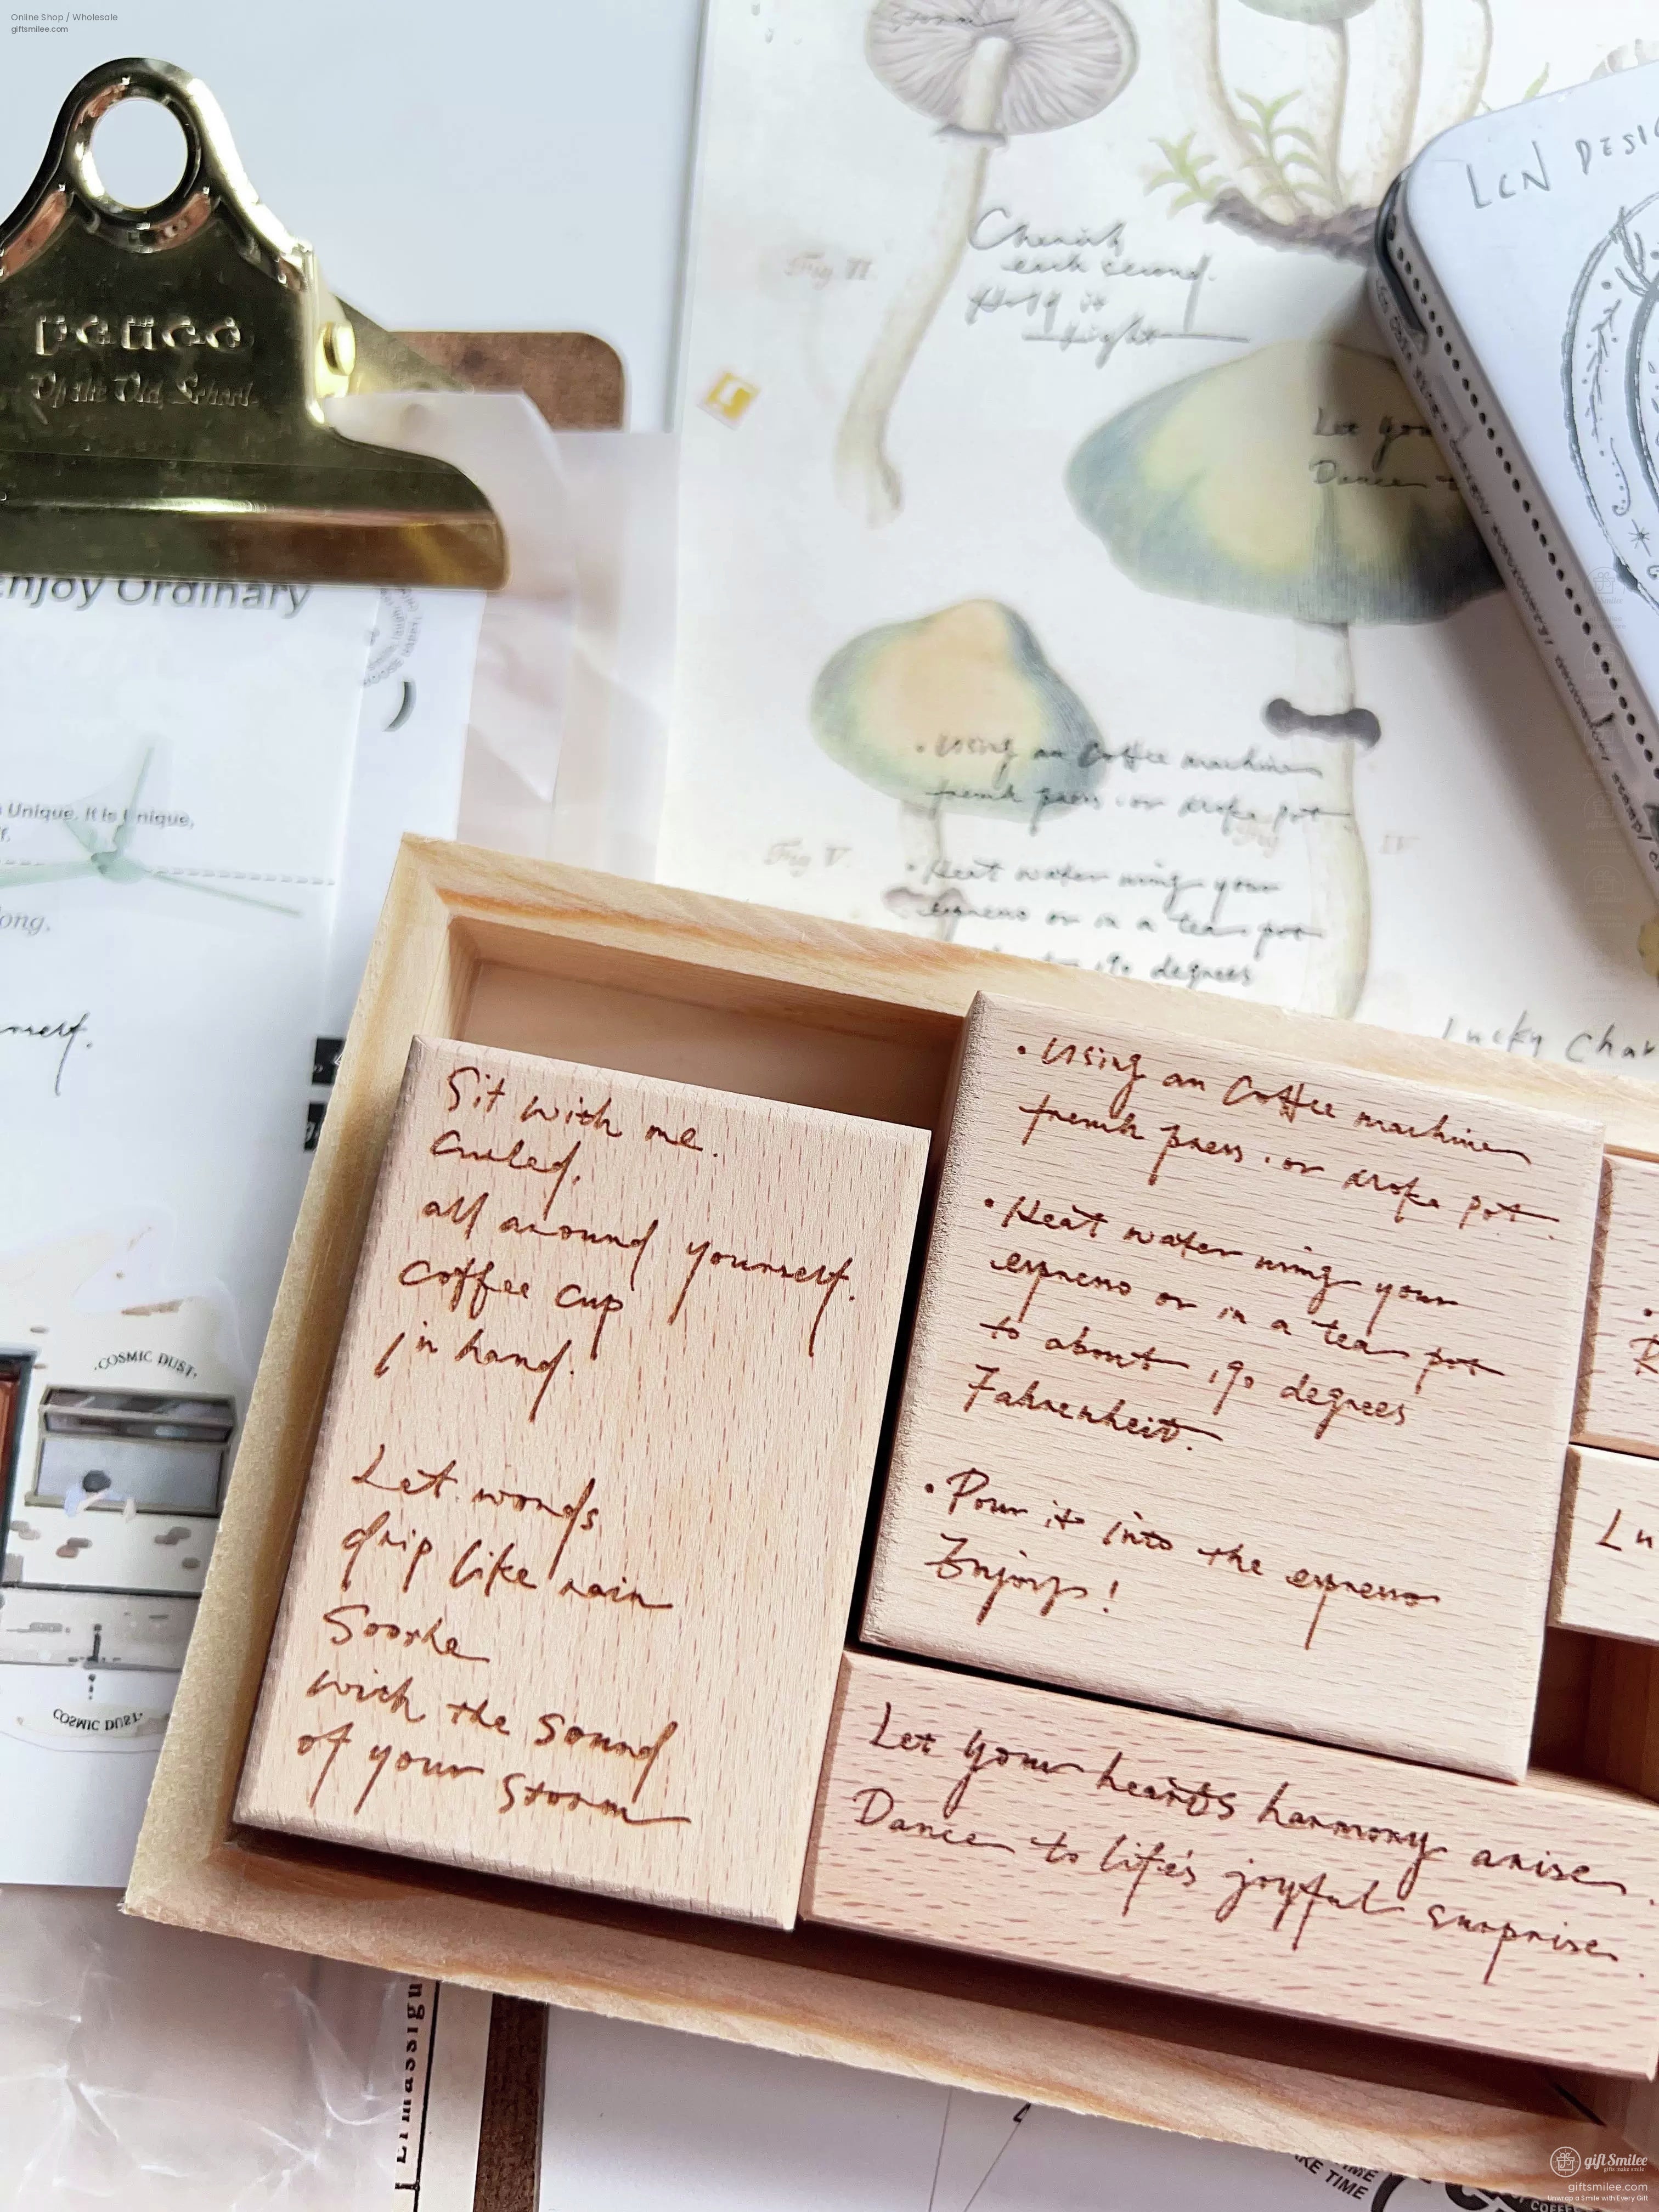 Online Shop / Wholesale
giftsmilee.com
LCN DESIG
Cherish
each second.
Hold it
tight
Fig VI.
penco
Of the Old School
Let you
Dance t
Enjoy Ordinary
Unique. It is Unique,
ong.
• Using an Coffee machine
french press . or
pot.
Fig V.
IV
• Heat water using your
espresso or in a tea pot
190 degrees
Lucky Char
Sit with me.
Curled,
all around yourself.
coffee cup
in hand.
Let words
drip like rain
Soothe
with the sound
of your storm
• Using an Coffee machine
french press . or
pot.
• Heat water using your
espresso or in a tea pot
to about 190 degrees
Fahrenheit.
• Pour it into the espresso
Enjoys!
R
Lu
Let your hearts harmony arise.
Dance to life's joyful surprise.
.COSMIC DUST.
COSMIC DUST.
KE TIME
gift Smilee
gifts make smile
giftsmilee.com
Unwrap a Smile with Every Gift